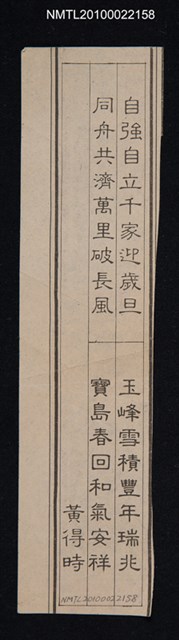 NMTL20100022158
自強自立千家迎歲旦
同舟共濟萬里破長風
玉峰雪積豐年瑞兆
寶島春回和氣安祥
黃得時
NMTL20100022158